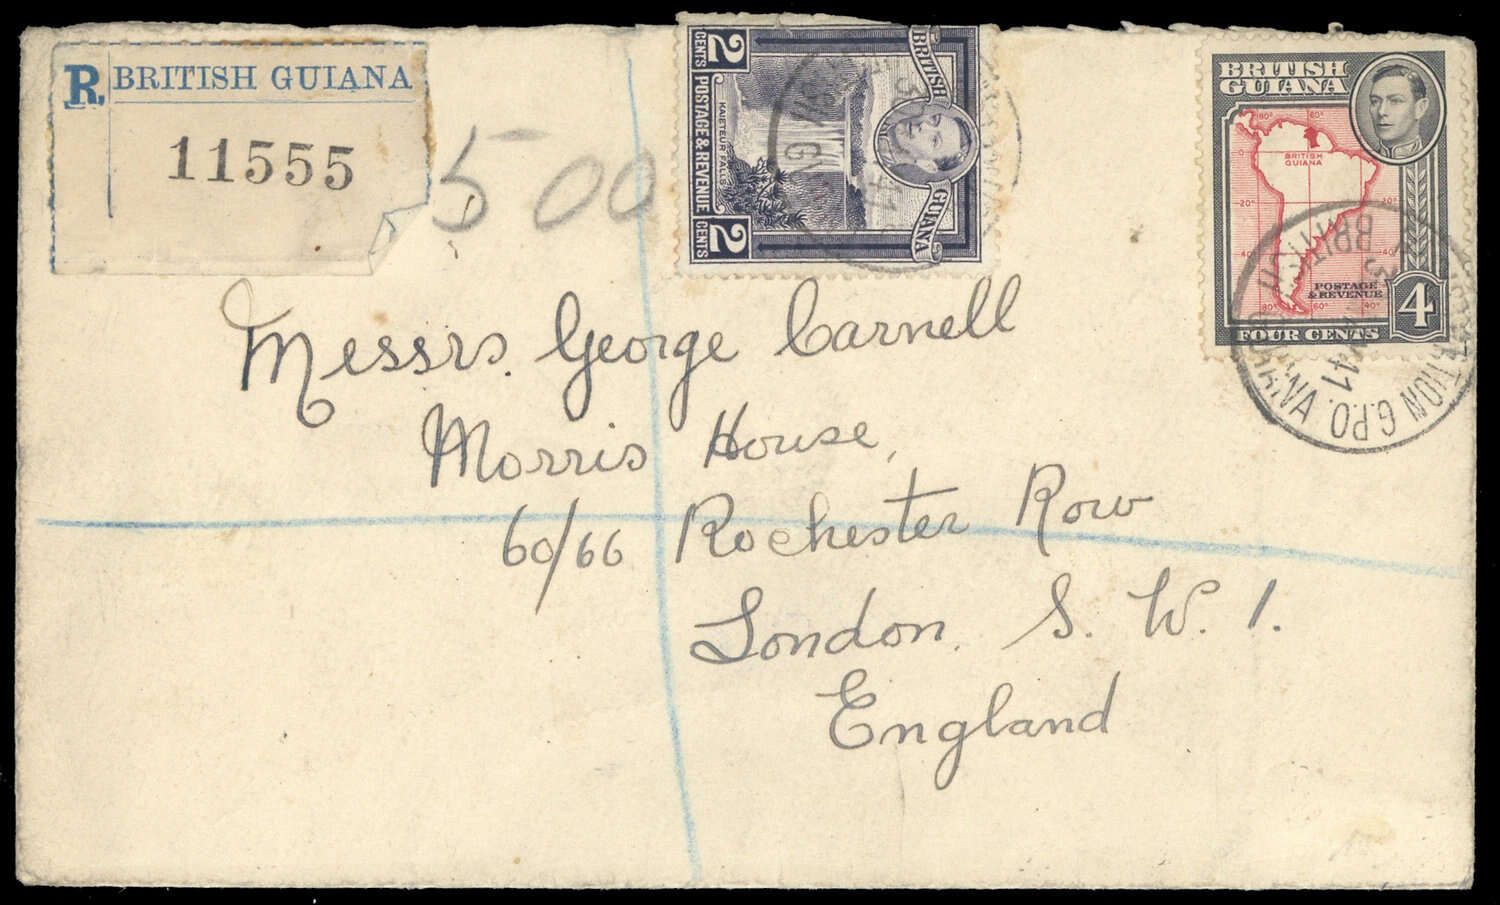 R. BRITISH GUIANA
11555
500
2 CENTS POSTAGE & REVENUE 2 CENTS
KAIETEUR FALLS
BRITISH GUIANA
BRITISH
GUIANA
80° 60°
0
BRITISH
GUIANA
20° 20°
40° 40°
POSTAGE
& REVENUE
80° 60° 40°
FOUR CENTS
4
G.P.O.
BRITISH
41
Messrs. George Carnell
Morris House,
60/66 Rochester Row
London. S. W. 1.
England